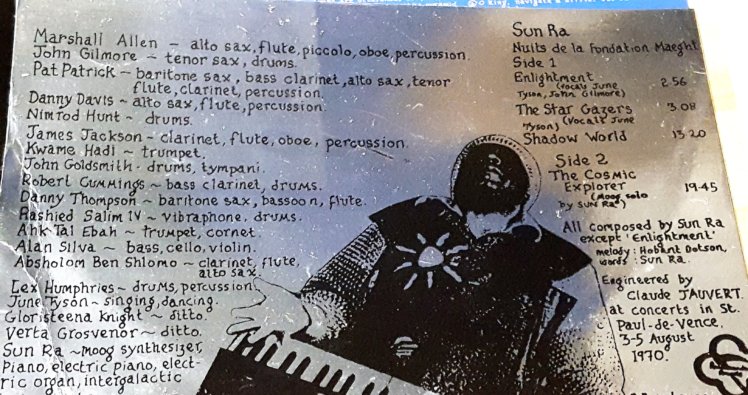 Marshall Allen ~ alto sax, flute, piccolo, oboe, percussion.
John Gilmore ~ tenor sax, drums.
Pat Patrick ~ baritone sax, bass clarinet, alto sax, tenor
flute, clarinet, percussion.
Danny Davis ~ alto sax, flute, percussion.
Nimrod Hunt ~ drums.
James Jackson ~ clarinet, flute, oboe, percussion.
Kwame Hadi ~ trumpet.
John Goldsmith - drums, tympani.
Robert Cummings ~ bass clarinet, drums.
Danny Thompson ~ baritone sax, bassoon, flute.
Rashied Salim IV ~ vibraphone, drums.
Ahk Tal Ebah ~ trumpet, cornet.
Alan Silva ~ bass, cello, violin.
Absholom Ben Shlomo ~ clarinet, flute,
alto sax.
Lex Humphries ~ drums, percussion.
June Tyson ~ singing, dancing.
Gloristeena Knight ~ ditto.
Verta Grosvenor ~ ditto.
Sun Ra ~ Moog synthesizer,
Piano, electric piano, elect-
ric organ, intergalactic
Sun Ra
Nuits de la Fondation Maeght
Side 1
Enlightment 2·56
(vocals June
Tyson, John Gilmore)
The Star Gazers 3·08
(Vocals June
Tyson)
Shadow World 13·20
Side 2
The Cosmic
Explorer 19·45
(Moog solo
by Sun Ra)
All composed by Sun Ra
except 'Enlightment'
melody: Hobart Dotson,
words: Sun Ra.
Engineered by
Claude JAUVERT
at concerts in St.
Paul-de-Vence.
3-5 August
1970.